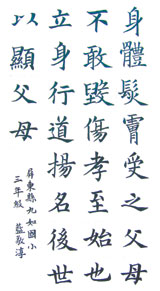 身體髮膚受之父母
不敢毀傷孝至始也
立身行道揚名後世
以顯父母
屏東縣九如國小
三年級 藍